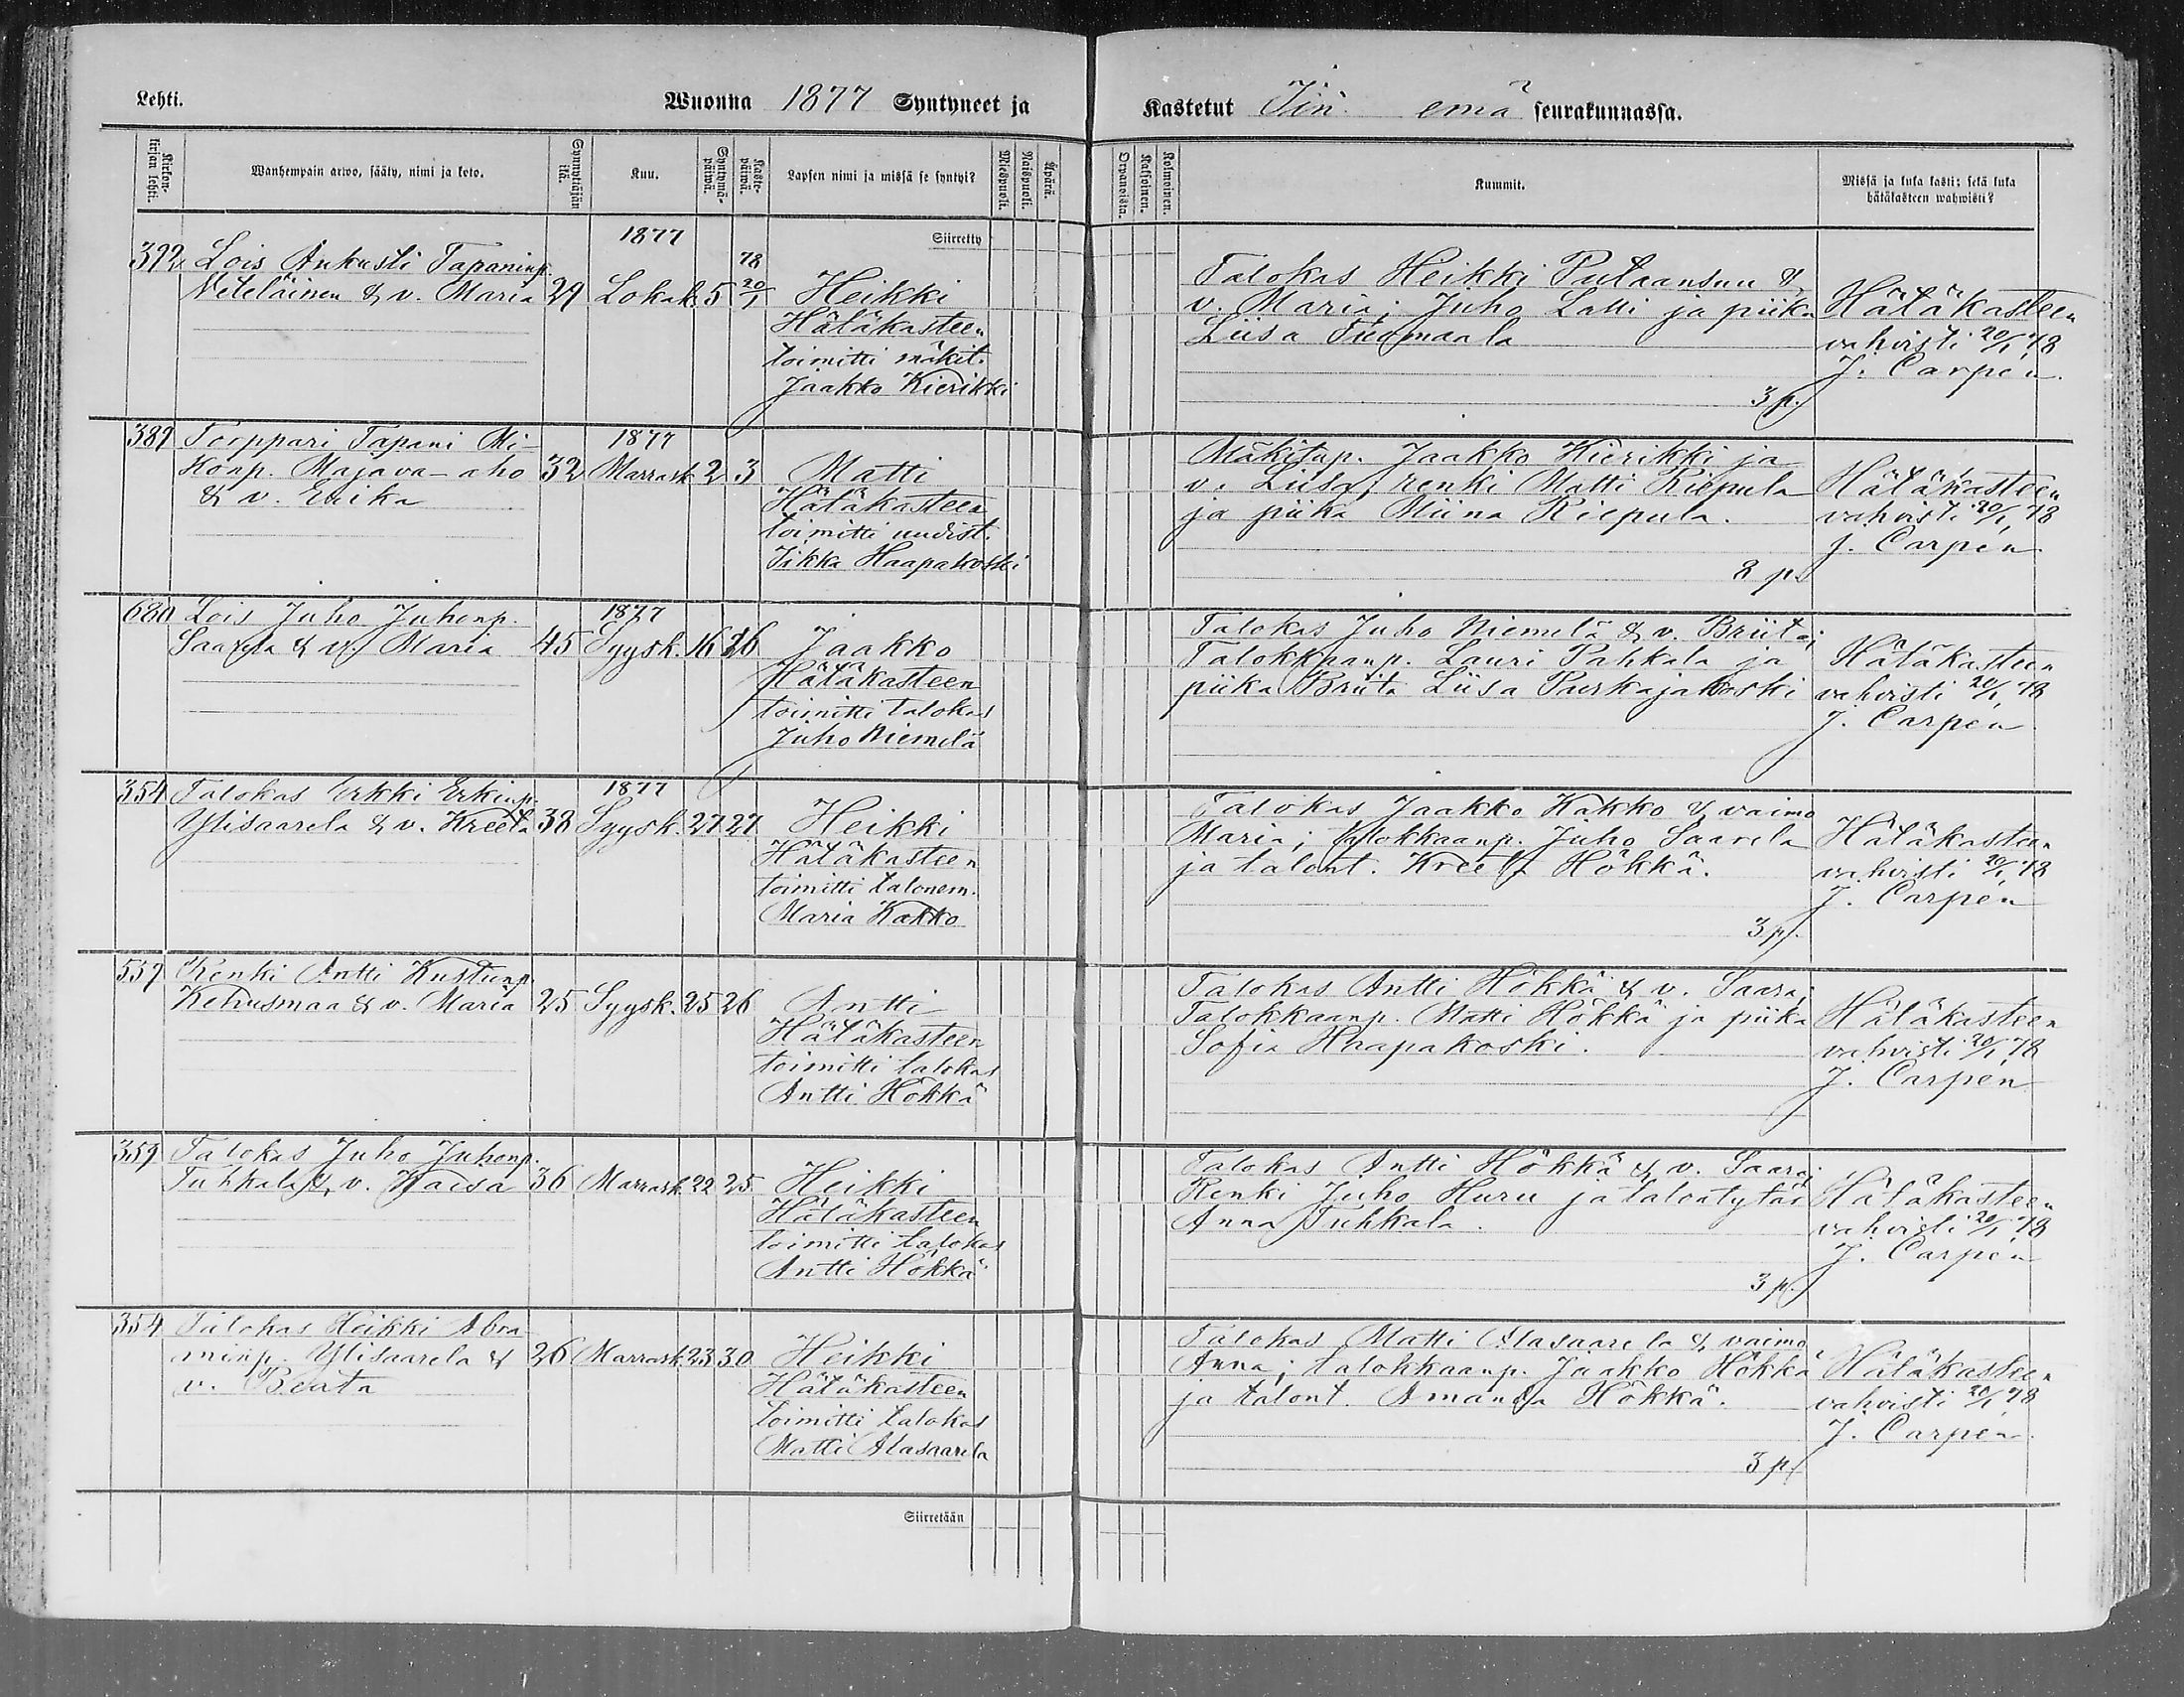 Lehti.
Wuonna 1877 Syntyneet ja
Kastetut Iin emä seurakunnassa.
Kirkonkirjan lehti.
Wanhempain arwo, sääty, nimi ja koto.
Synnyttäjän ikä.
Kuu.
Syntymäpäiwä.
Kastepäiwä.
Lapsen nimi ja missä se syntyi?
Miespuoli.
Naispuoli.
Äpärä.
Orpanoista.
Kaksoinen.
Kolmoinen.
Kummit.
Missä ja kuka kasti; sekä kuka
hätäkasteen wahwisti?
Siirretty
392 Lois Aukusti Tapaninp.
Neteläinen & v. Maria 29
1877
Lokak. 5
78
20/1
Heikki
Hätäkasteen
toimitti mäkit.
Jaakko Kierikki
Talokas Heikki Putaansuu &
v. Maria; Juho Latti ja piika
Liisa Tuomaala
3 p.
Hätäkasteen
vahvisti 20/1 78
J. Carpén.
389 Torppari Tapani Mi-
konp. Majava-aho 32
& v. Erika
1877
Marrask. 2 3
Matti
Hätäkasteen
toimitti uudist.
Iikka Haapakoski
Mäkitup. Jaakko Kierikki ja
v. Liisa; renki Matti Riepula
ja piika Miina Riepula.
8 p.
Hätäkasteen
vahvisti 20/1 78
J. Carpén
680 Lois Juho Juhonp.
Saarela & v. Maria 45
1877
Syysk. 16 26
Jaakko
Hätäkasteen
toimitti talokas
Juho Niemelä
Talokas Juho Niemelä & v. Briita;
Talokkaanp. Lauri Pahkala ja
piika Briita Liisa Purkajakoski
Hätäkasteen
vahvisti 20/1 78
J. Carpén
354 Talokas Erkki Erkinp.
Ylisaarela & v. Kreeta 38
1877
Syysk. 27 27
Heikki
Hätäkasteen
toimitti talonem.
Maria Kakko
Talokas Jaakko Kakko & vaimo
Maria; talokkaanp. Juho Saarela
ja talont. Kreeta Hökkä.
3 p.
Hätäkasteen
vahvisti 20/1 78
J. Carpén
559 Renki Antti Kustunp.
Kehusmaa & v. Maria 25 Syysk. 25 26
Antti
Hätäkasteen
toimitti talokas
Antti Hökkä
Talokas Antti Hökkä & v. Saara;
Talokkaanp. Matti Hökkä ja piika
Sofia Haapakoski.
Hätäkasteen
vahvisti 20/1 78
J. Carpén
359 Talokas Juho Juhonp.
Tuhkala & v. Kaisa 36 Marrask. 22 25
Heikki
Hätäkasteen
toimitti talokas
Antti Hökkä
Talokas Antti Hökkä & v. Saara;
Renki Juho Huru ja talontytär
Anna Tuhkala.
3 p.
Hätäkasteen
vahvisti 20/1 78
J. Carpén
354 Talokas Heikki Abra-
minp. Ylisaarela & 26 Marrask. 23 30
v. Beata
Heikki
Hätäkasteen
toimitti talokas
Matti Alasaarela
Talokas Matti Alasaarela & vaimo
Anna; talokkaanp. Jaakko Hökkä
ja talont. Amanda Hökkä.
3 p.
Hätäkasteen
vahvisti 20/1 78
J. Carpén.
Siirretään